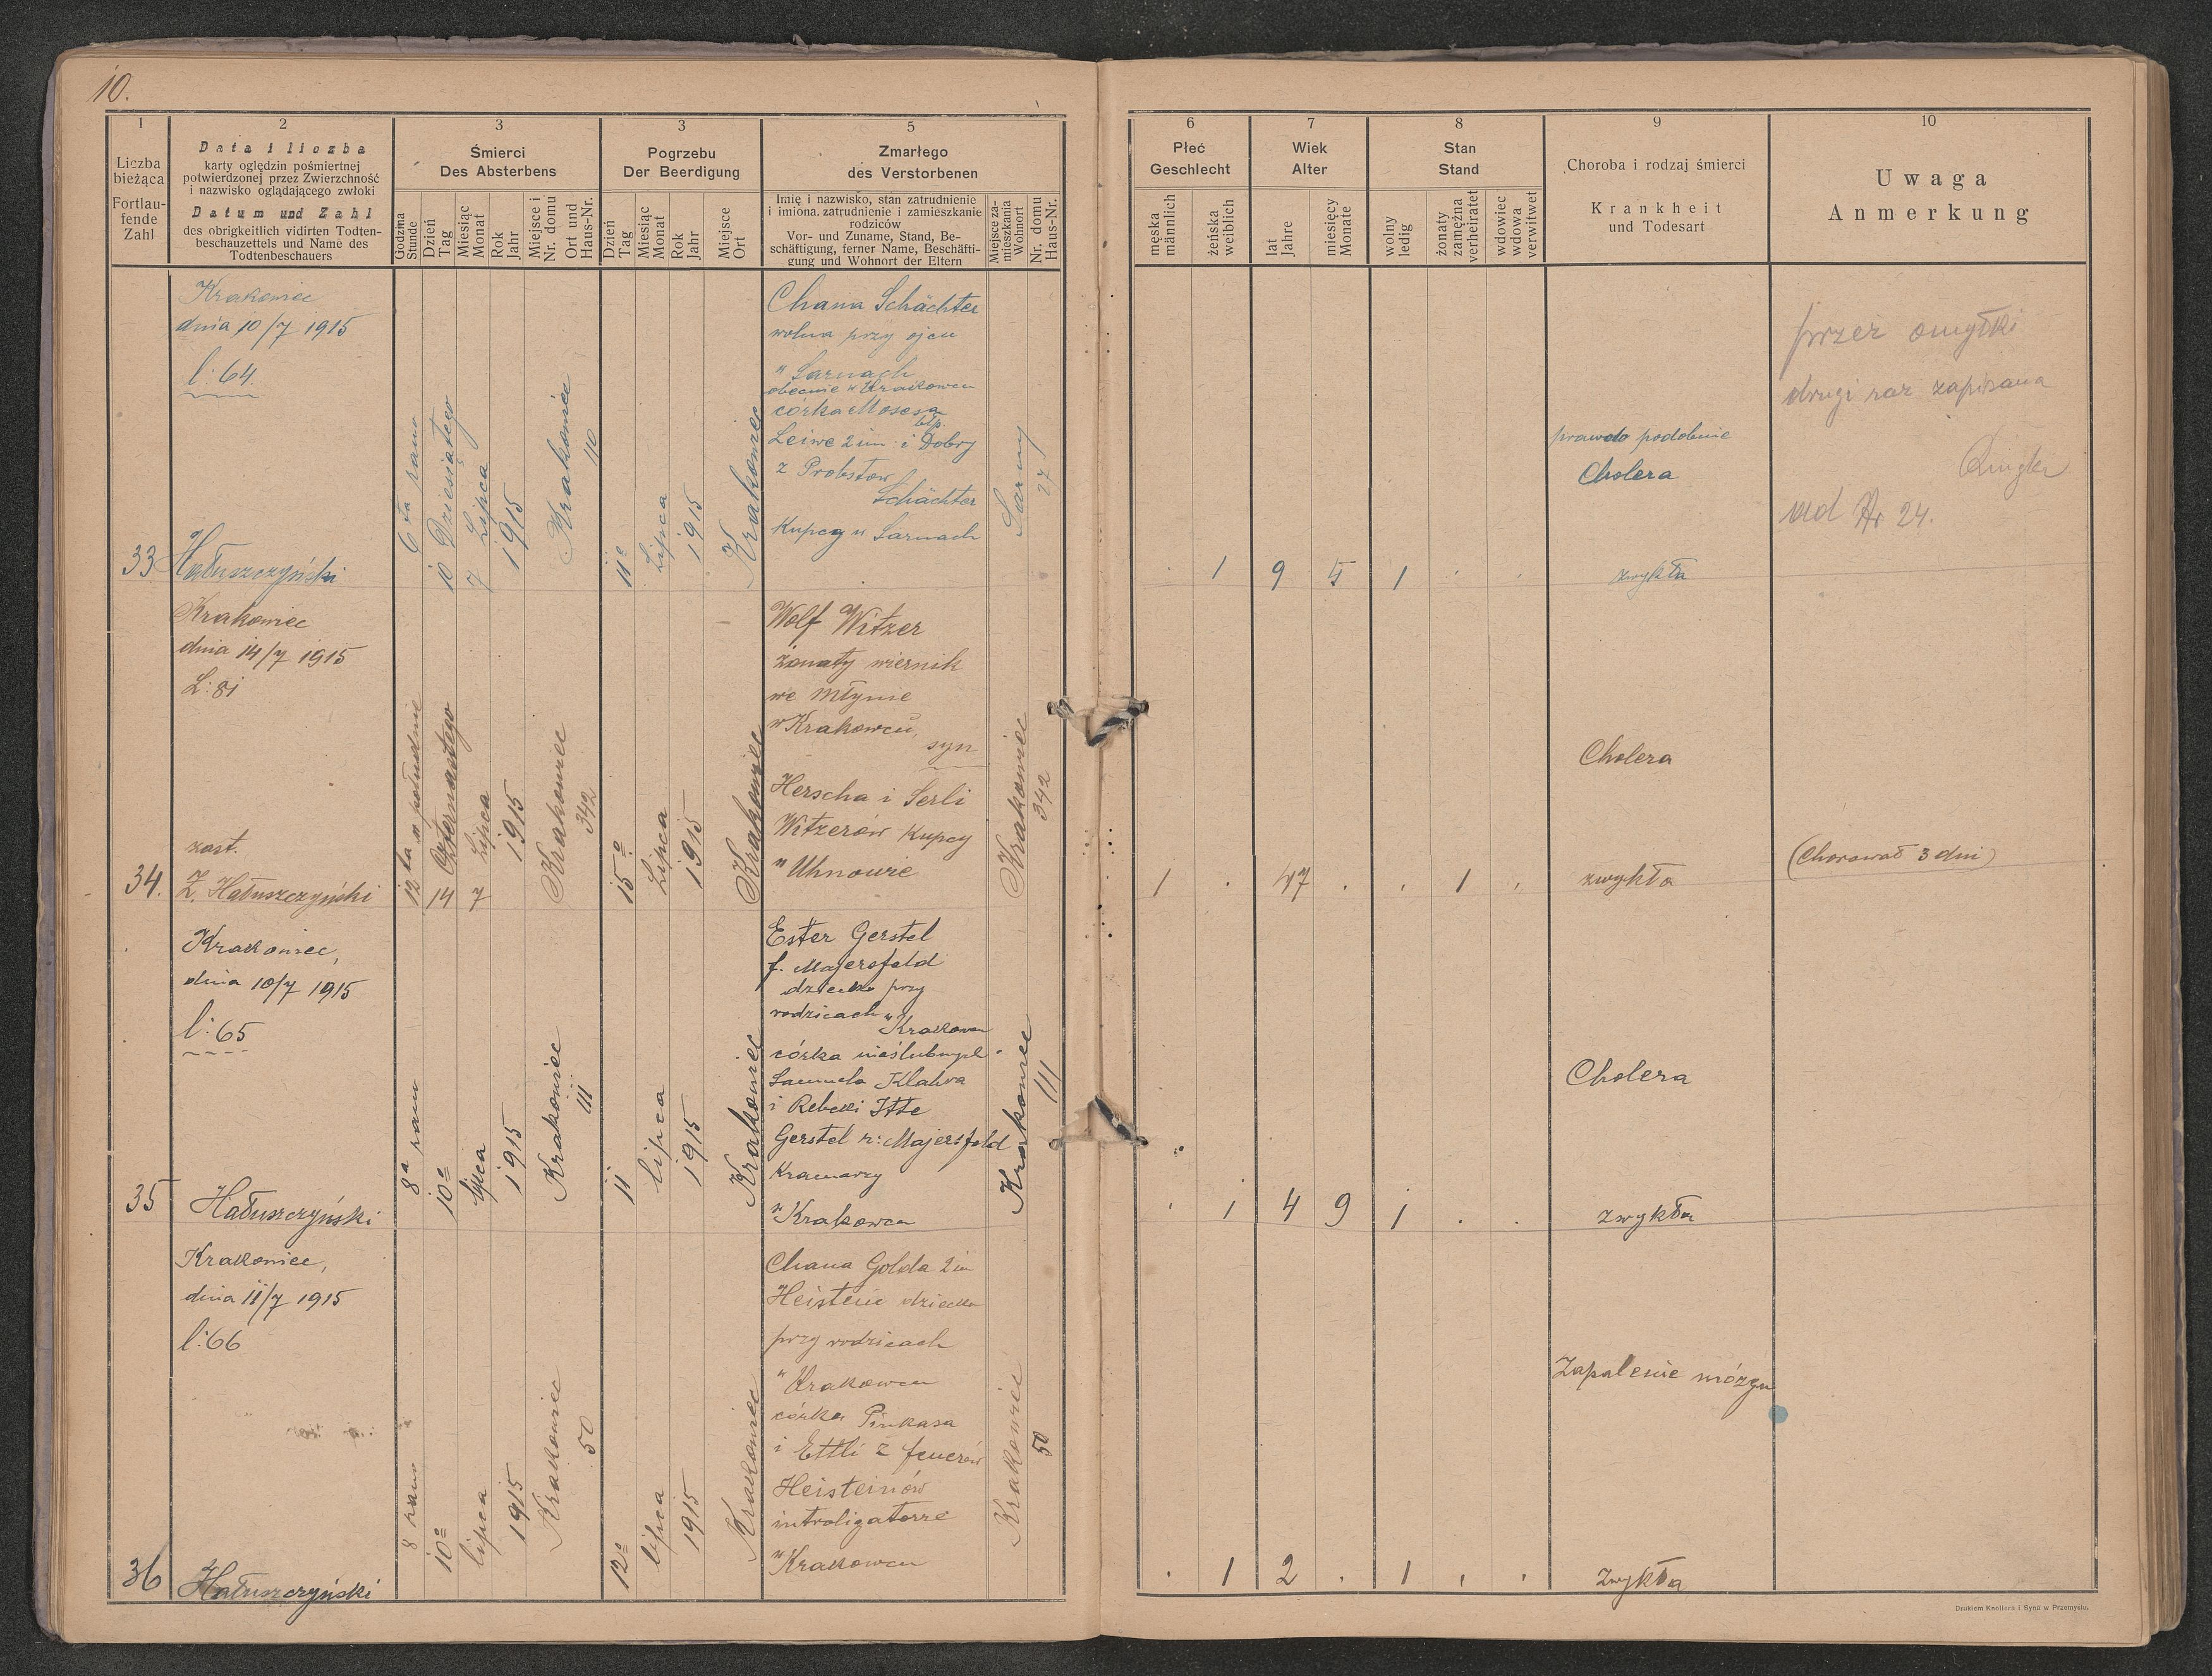 10.
1
2
3
3
5
6
7
8
9
10
Liczba
bieżąca
Fortlau-
fende
Zahl
Data i liczba
karty oględzin pośmiertnej
potwierdzonej przez Zwierzchność
i nazwisko oglądającego zwłoki
Datum und Zahl
des obrigkeitlich vidirten Todten-
beschauzettels und Name des
Todtenbeschauers
Śmierci
Des Absterbens
Godzina
Stunde
Dzień
Tag
Miesiąc
Monat
Rok
Jahr
Miejsce i
Nr. domu
Ort und
Haus-Nr.
Pogrzebu
Der Beerdigung
Dzień
Tag
Miesiąc
Monat
Rok
Jahr
Miejsce
Ort
Zmarłego
des Verstorbenen
Imię i nazwisko, stan zatrudnienie
i imiona, zatrudnienie i zamieszkanie
rodziców
Vor- und Zuname, Stand, Be-
schäftigung, ferner Name, Beschäfti-
gung und Wohnort der Eltern
Miejsce za-
mieszkania
Wohnort
Nr. domu
Haus-Nr.
Płeć
Geschlecht
męska
männlich
żeńska
weiblich
Wiek
Alter
lat
Jahre
miesięcy
Monate
Stan
Stand
wolny
ledig
żonaty
zamężna
verheiratet
wdowiec
wdowa
verwitwet
Choroba i rodzaj śmierci
Krankheit
und Todesart
Uwaga
Anmerkung
33
Krakowiec
dnia 10/7 1915
l: 64.
Hałuszczyński
6ta rano
10 Dziesiątego
7 Lipca
1915
Krakowiec
110
11º
Lipca
1915
Krakowiec
Chana Schächter
wolna przy ojcu
w Sarnach
obecnie w Krakowcu
córka Mosesa
Leiwe 2 im: i Dobry
z Probstów
Schächter
Kupcy w Sarnach
Sarny
27
1
9
5
1
prawdo podobnie
Cholera
zwykła
przez omyłki
drugi raz zapisana
vid Nr 24.
34.
Krakowiec
dnia 14/7 1915
L: 81
zast.
Z. Hałuszczyński
12ta w południe
14 Czternastego
7 Lipca
1915
Krakowiec
342
15º
Lipca
1915
Krakowiec
Wolf Witzer
żonaty wiernik
we młynie
w Krakowcu,
syn
Herscha i Serli
Witzerów Kupcy
w Uhnowie
Krakowiec
342
1
47
1
Cholera
zwykła
(Chorował 3 dni)
35
Krakowiec,
dnia 10/7 1915
l: 65
Hałuszczyński
8ª rano
10º
lipca
1915
Krakowiec
111
11
lipca
1915
Krakowiec
Ester Gerstel
f. Majersfeld
dziecko przy
rodzicach w Krakowcu
córka nieślubnych
Samuela Klahra
i Rebeki Itte
Gerstel r: Majersfeld
Kramarzy
w Krakowcu
Krakowiec
111
1
4
9
1
Cholera
zwykła
36
Krakowiec,
dnia 11/7 1915
l: 66
Hałuszczyński
8 rano
10º
lipca
1915
Krakowiec
50
12º
lipca
1915
Krakowiec
Chana Golda 2 im
Heistein dziecko
przy rodzicach
w Krakowcu
córka Pinkasa
i Ettli z Feuerów
Heisteinów
introligatorze
w Krakowcu
Krakowiec
50
1
2
1
Zapalenie mózgu
Zwykła
Drukiem Knollera i Syna w Przemyślu.